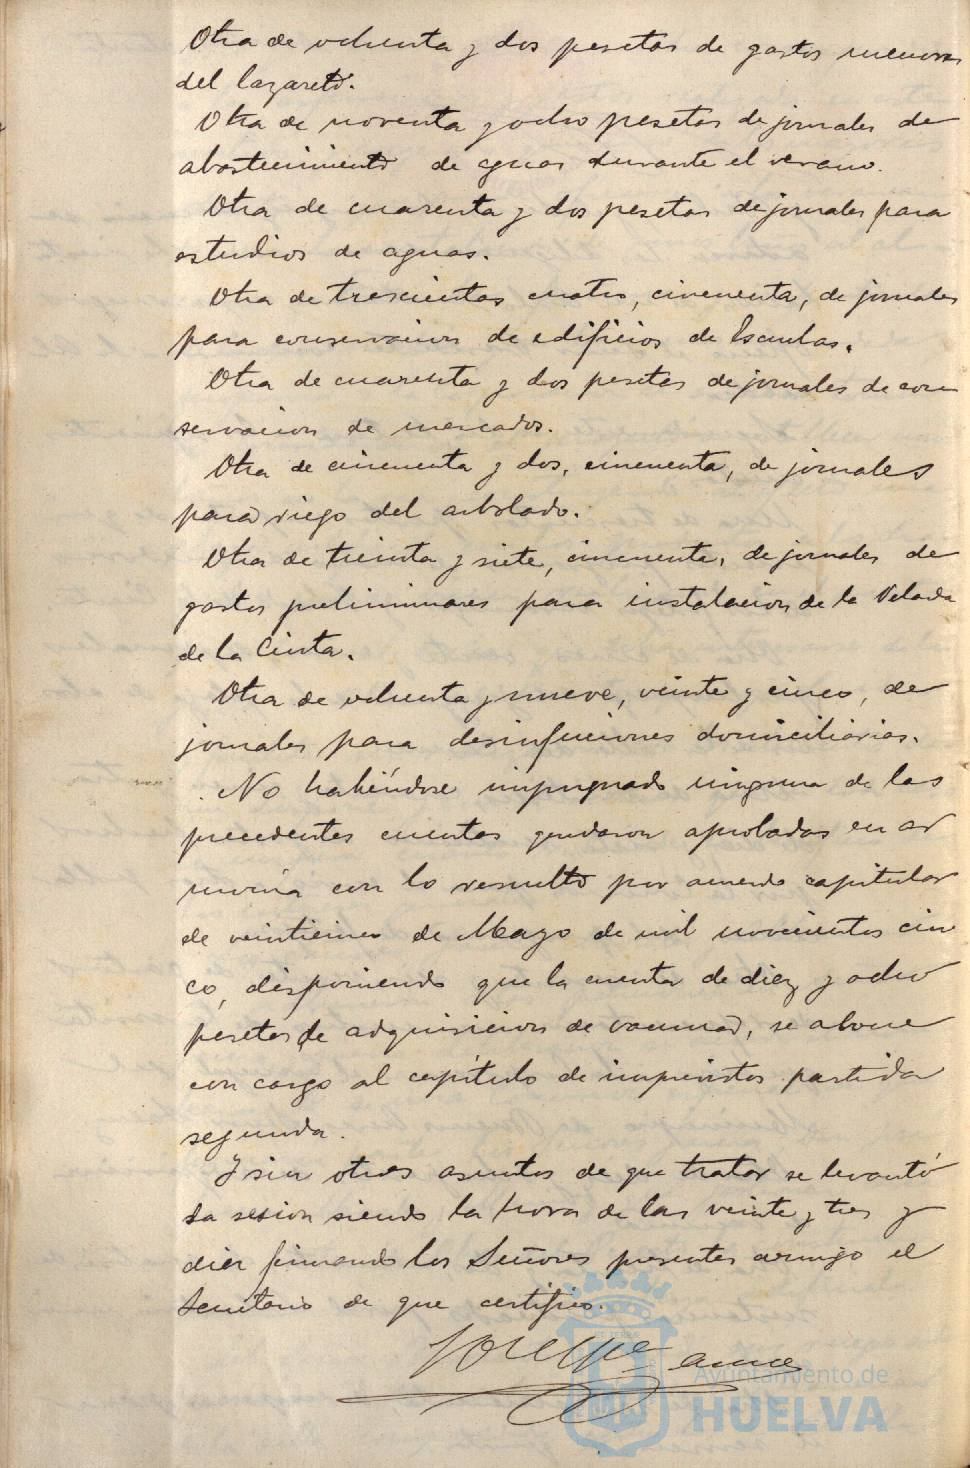 Otra de ochenta y dos pesetas de gastos menores
del lazareto.
Otra de noventa y ocho pesetas de jornales de
abastecimiento de aguas durante el verano.
Otra de cuarenta y dos pesetas de jornales para
estudios de aguas.
Otra de trescientas cuatro, cincuenta, de jornales
para conservacion de edificios de Escuelas.
Otra de cuarenta y dos pesetas de jornales de con
servacion de mercados.
Otra de cincuenta y dos, cincuenta, de jornales
para riego del arbolado.
Otra de treinta y siete, cincuenta, de jornales de
gastos preliminares para instalacion de la Velada
de la Cinta.
Otra de ochenta y nueve, veinte y cinco, de
jornales para desinfecciones domiciliarias.
No habiéndose impugnado ninguna de las
precedentes cuentas quedaron aprobadas en ar
monia con lo resuelto por acuerdo capitular
de veinticinco de Mayo de mil novecientos cin
co, disponiendo que la cuenta de diez y ocho
pesetas de adquisicion de vacunas, se abone
con cargo al capítulo de imprevistos partida
segunda.
Y sin otros asuntos de que tratar se levantó
la sesion siendo la hora de las veinte y tres y
diez firmando los Señores presentes conmigo el
Secretario de que certifico.
Ayuntamiento de
HUELVA